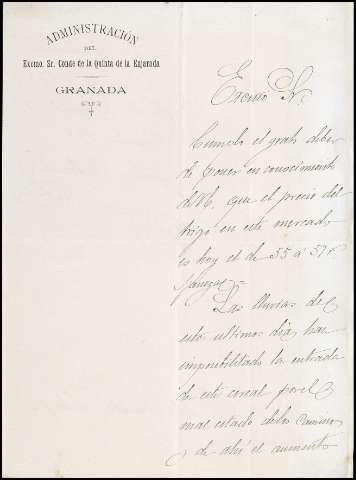 ADMINISTRACIÓN
DEL
Excmo. Sr. Conde de la Quinta de la Enjarada
GRANADA
Excmo Sr.
Cumplo el grato deber
de poner en conocimiento
de V.E. que el precio del
trigo en este mercado
es hoy el de 55 a 57 r
fanega.
Las lluvias de
esto ultimos dias han
imposibilitado la entrada
de este cereal por el
mal estado de los caminos
y de ahi el aumento